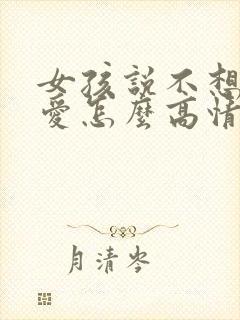 女孩說不想
愛怎麼高情
月清岑